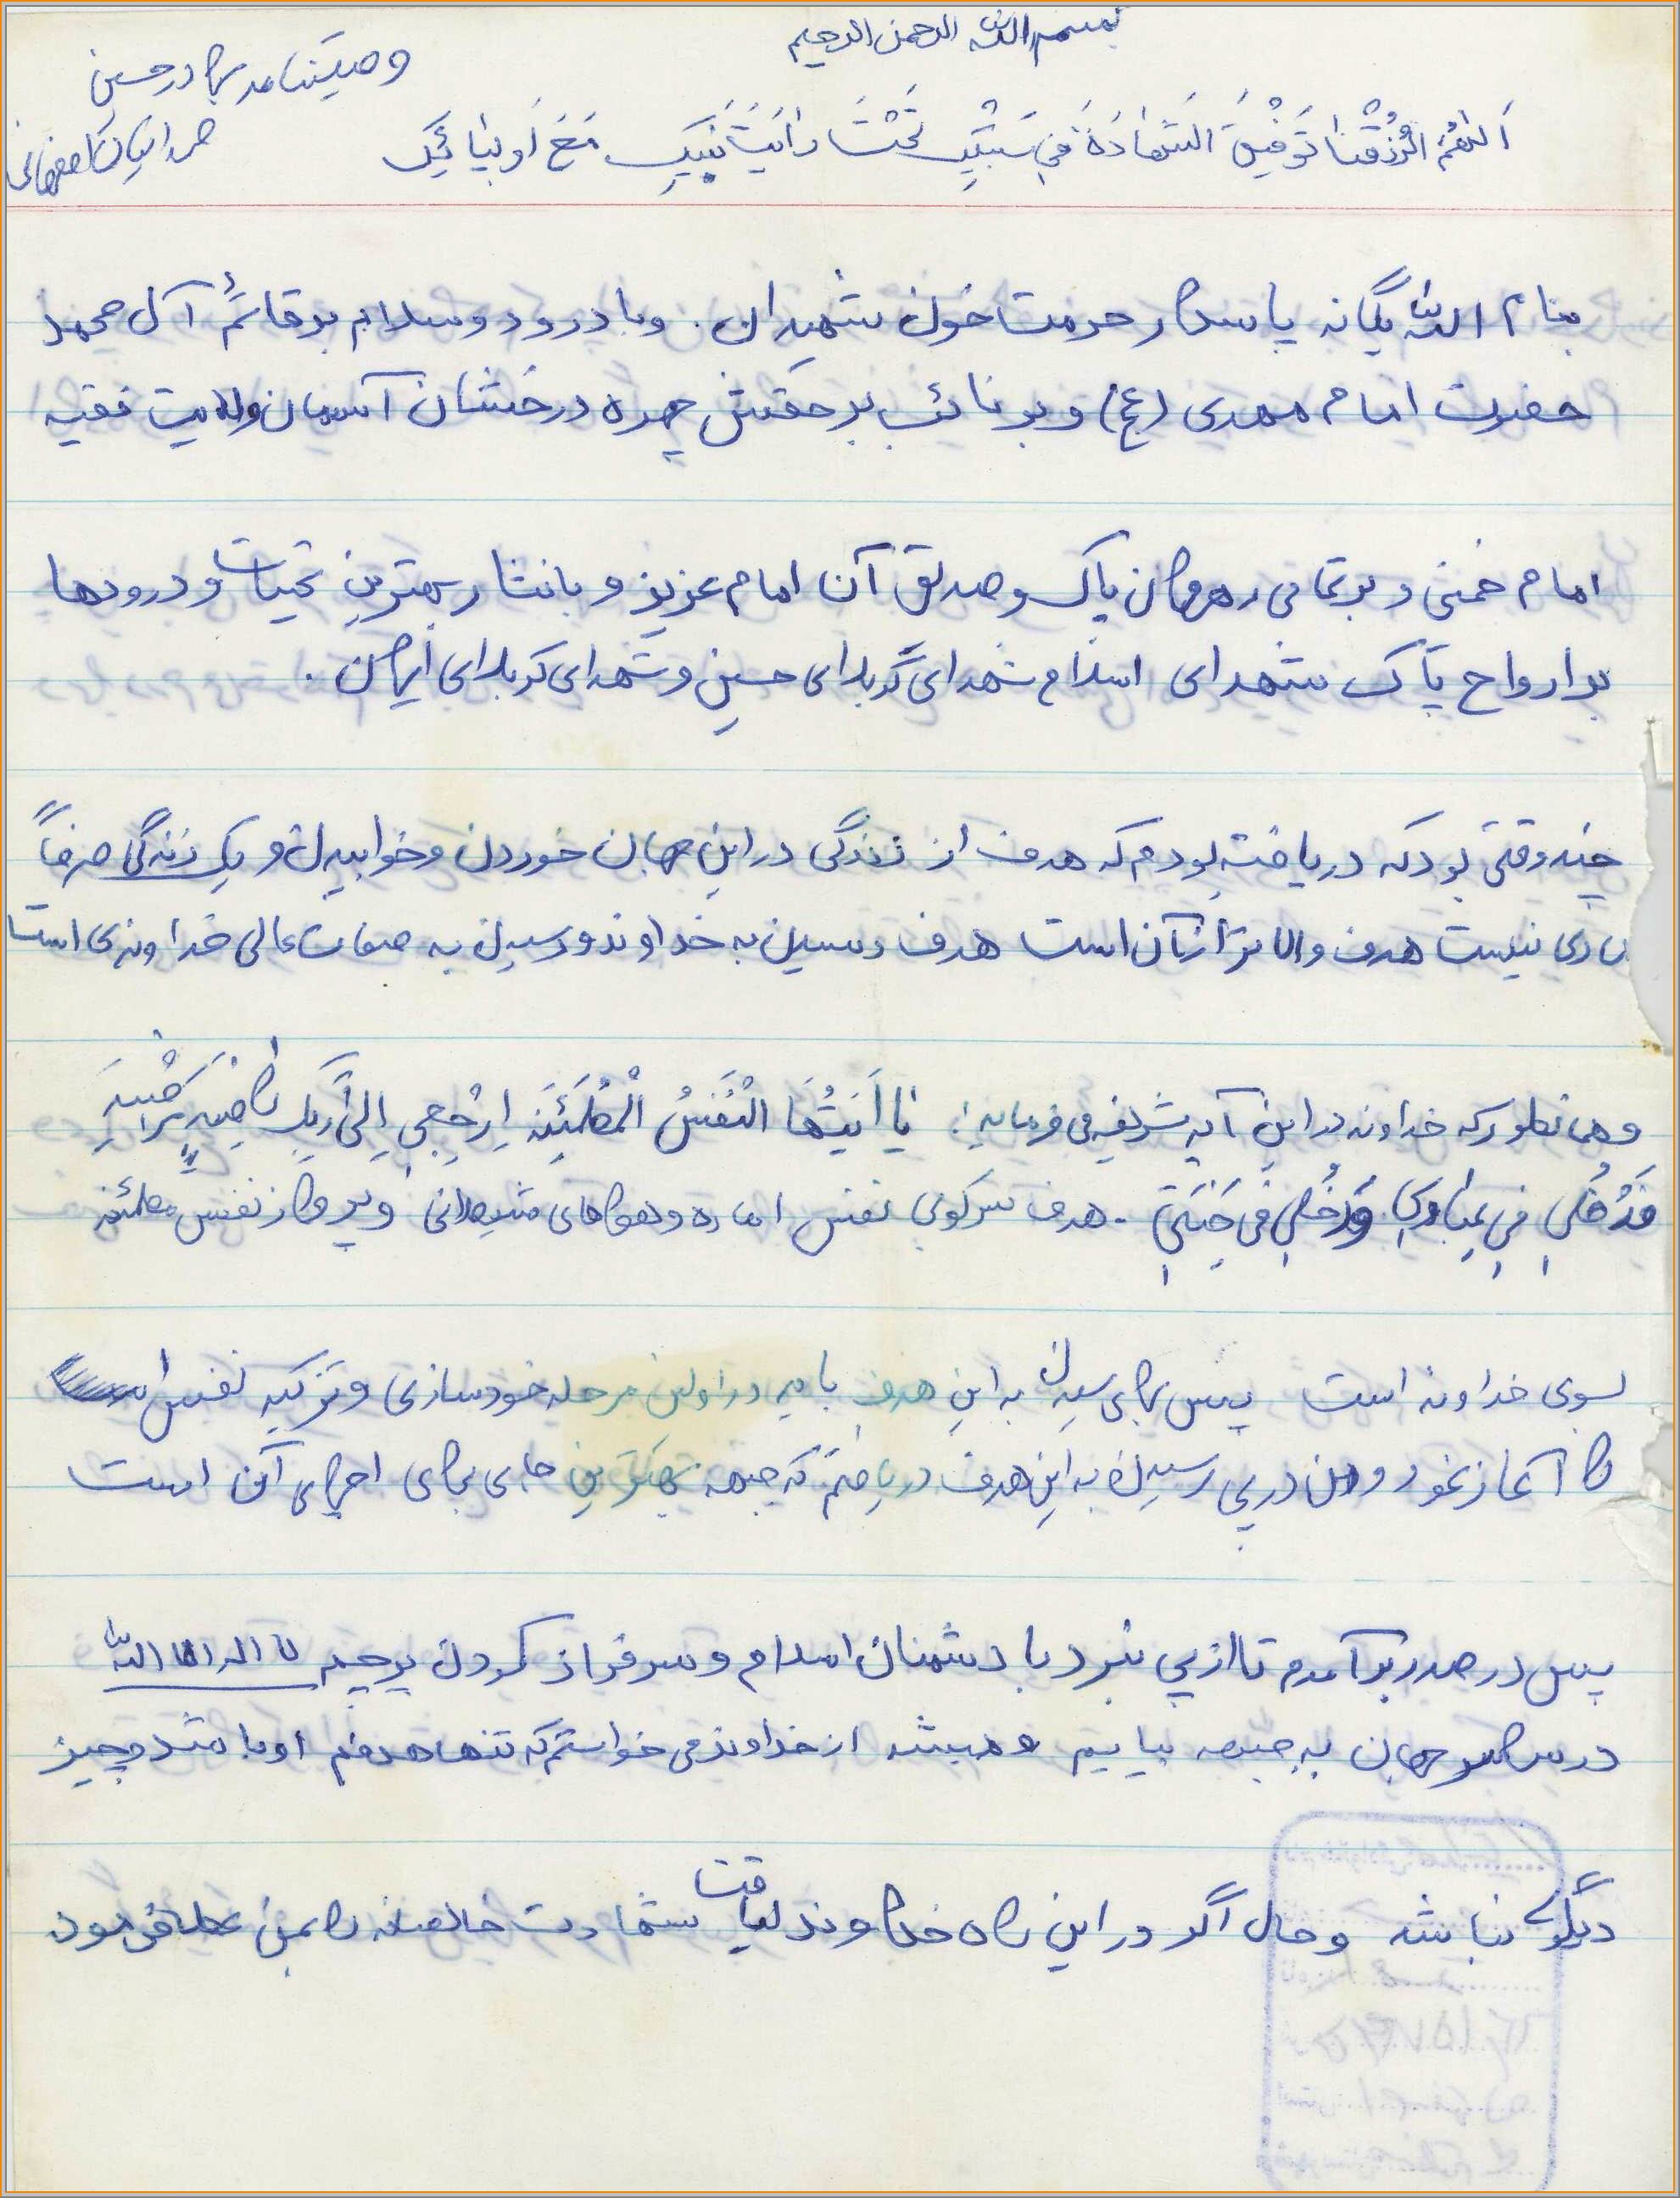 بسم الله الرحمن الرحیم
وصیتنامه برادر حسین
صرامیان اصفهانی
اَللّهُمَّ ارْزُقْنا تَوْفیقَ الشَهادَةَ فی سَبیلِک تَحْتَ رایَتَ نَبیِک مَعَ اَولیائِک
بنام الله یگانه پاسدار حرمت خون شهیدان. و با درود و سلام بر قائم آل محمد
حضرت امام مهدی (عج) و بر نائب بر حقش چهره درخشان آسمان ولایت فقیه
امام خمینی و بر تمامی رهروان پاک و صدیق آن امام عزیز و با نثار بهترین تحیات و درودها
بر ارواح پاک شهدای اسلام شهدای کربلای حسین و شهدای کربلای ایران.
چند وقتی بود که دریافته بودم که هدف از زندگی در این جهان خوردن و خوابیدن و یک زندگی صرفاً
مادی نیست هدف والاتر از آن است هدف رسیدن به خداوند و رسیدن به صفات عالی خداوندی است
و همانطور که خداوند در این آیه شریفه می فرماید: یا اَیَتُهَا النَفْسُ الْمُطْمَئِنَه اِرْجِعی اِلی رَبِکِ راضیةٍ مَرْضیَه
فَدْخُلی فی عِبادی وَدْخُلی فی جَنَتی - هدف سرکوبی نفس اماره و هواهای شیطانی و پرواز نفس مطمئنه
بسوی خداوند است پس برای رسیدن به این هدف باید در اولین مرحله خودسازی و تزکیه نفس
را آغاز نمود و من در پی رسیدن به این هدف دریافتم که جبهه بهترین جای برای اجرای آن است
پس در صدد برآمدم تا از پی نبرد با دشمنان اسلام و سرفراز کردن پرچم لا اله الا الله
در سراسر جهان به جبهه بیایم و همیشه از خداوند می خواستم که تنها هدفم او باشد و چیز
دیگری نباشد و حال اگر در این راه خداوند لیاقت شهادت خالصانه را بمن عطا فرمود